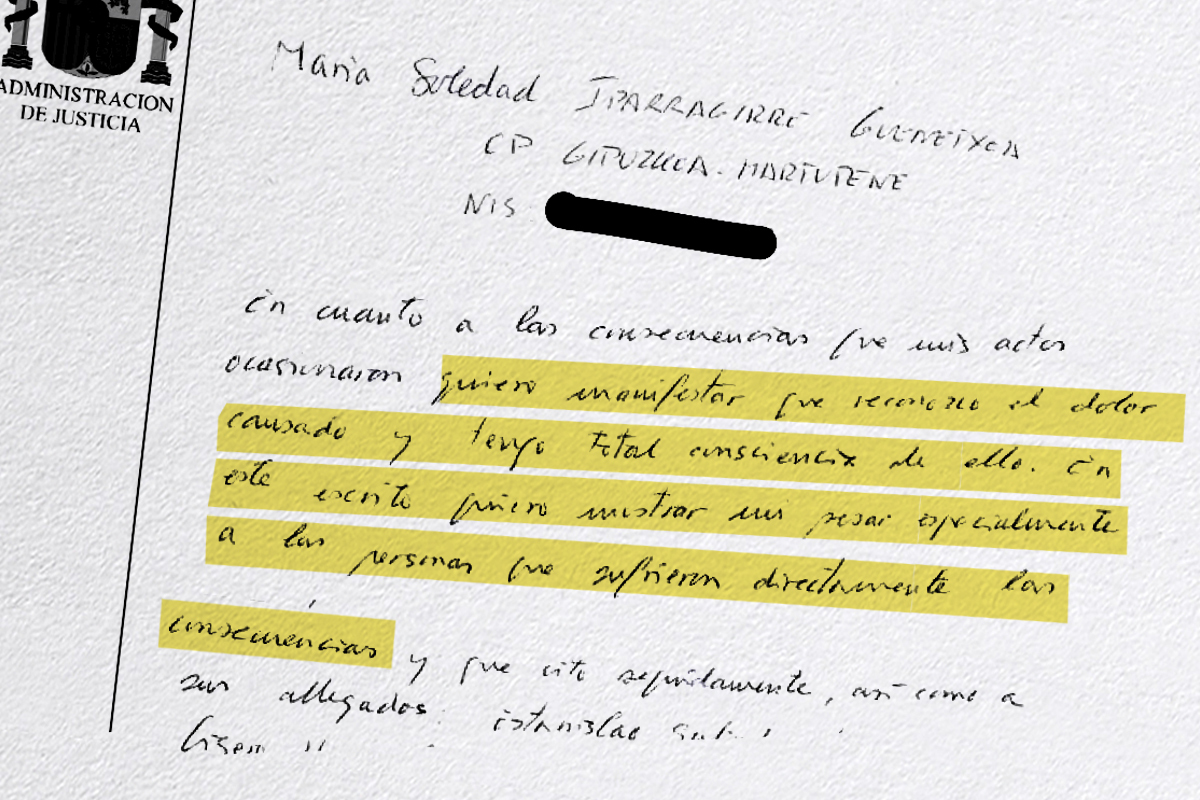 ADMINISTRACION
DE JUSTICIA
Maria Soledad IPARRAGIRRE GUENETXEA
CP GIPUZKOA. MARTUTENE
NIS
En cuanto a las consecuencias que mis actos
ocasionaron quiero manifestar que reconozco el dolor
causado y tengo total consciencia de ello. En
este escrito quiero mostrar mi pesar especialmente
a las personas que sufrieron directamente las
consecuencias y que cito seguidamente, así como a
sus allegados: Estanislao